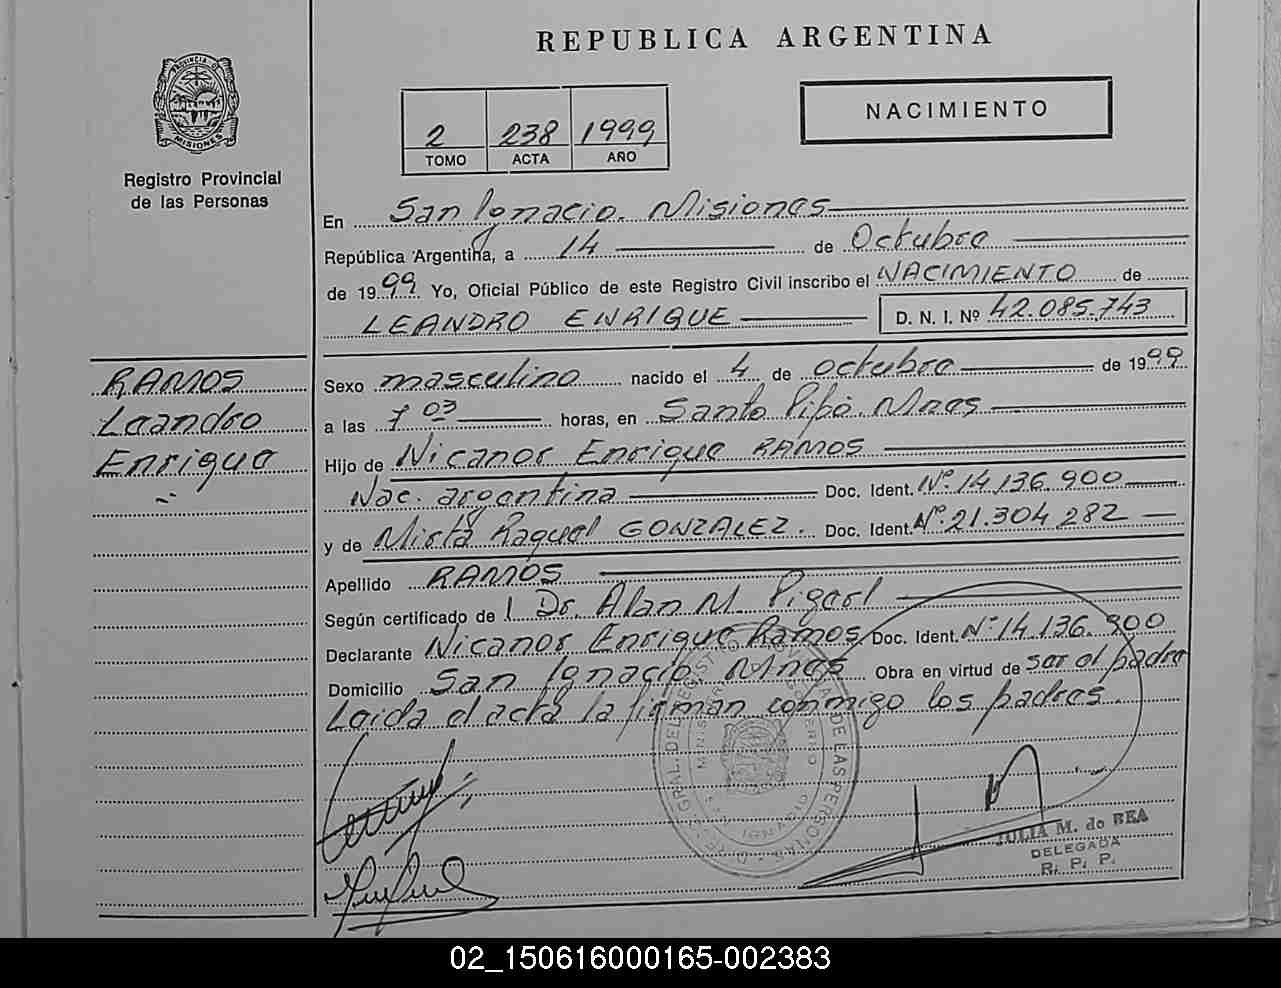 REPUBLICA ARGENTINA
PROVINCIA D
MISIONES
Registro Provincial
de las Personas
2 238 1999
TOMO ACTA AÑO
NACIMIENTO
En San Ignacio. Misiones
República Argentina, a 14 de Octubre
de 1999 Yo, Oficial Público de este Registro Civil inscribo el NACIMIENTO de
LEANDRO ENRIQUE D. N. I. Nº 42.085.743
RAMOS
Leandro
Enrique
Sexo masculino nacido el 4 de octubre de 1999
a las 7 03 horas, en Santo Pipó. Mnes
Hijo de Nicanor Enrique RAMOS
Nac. argentina Doc. Ident. Nº 14.136.900
y de Mirta Raquel GONZALEZ. Doc. Ident. Nº 21.304.282
Apellido RAMOS
Según certificado de l Dr. Alan M.
Declarante Nicanor Enrique Ramos Doc. Ident. Nº 14.136.900
Domicilio San Ignacio Mnes Obra en virtud de ser el padre
Leida el acta la firman conmigo los padres.
JULIA M. de BEA
DELEGADA
R. P. P.
02_150616000165-002383